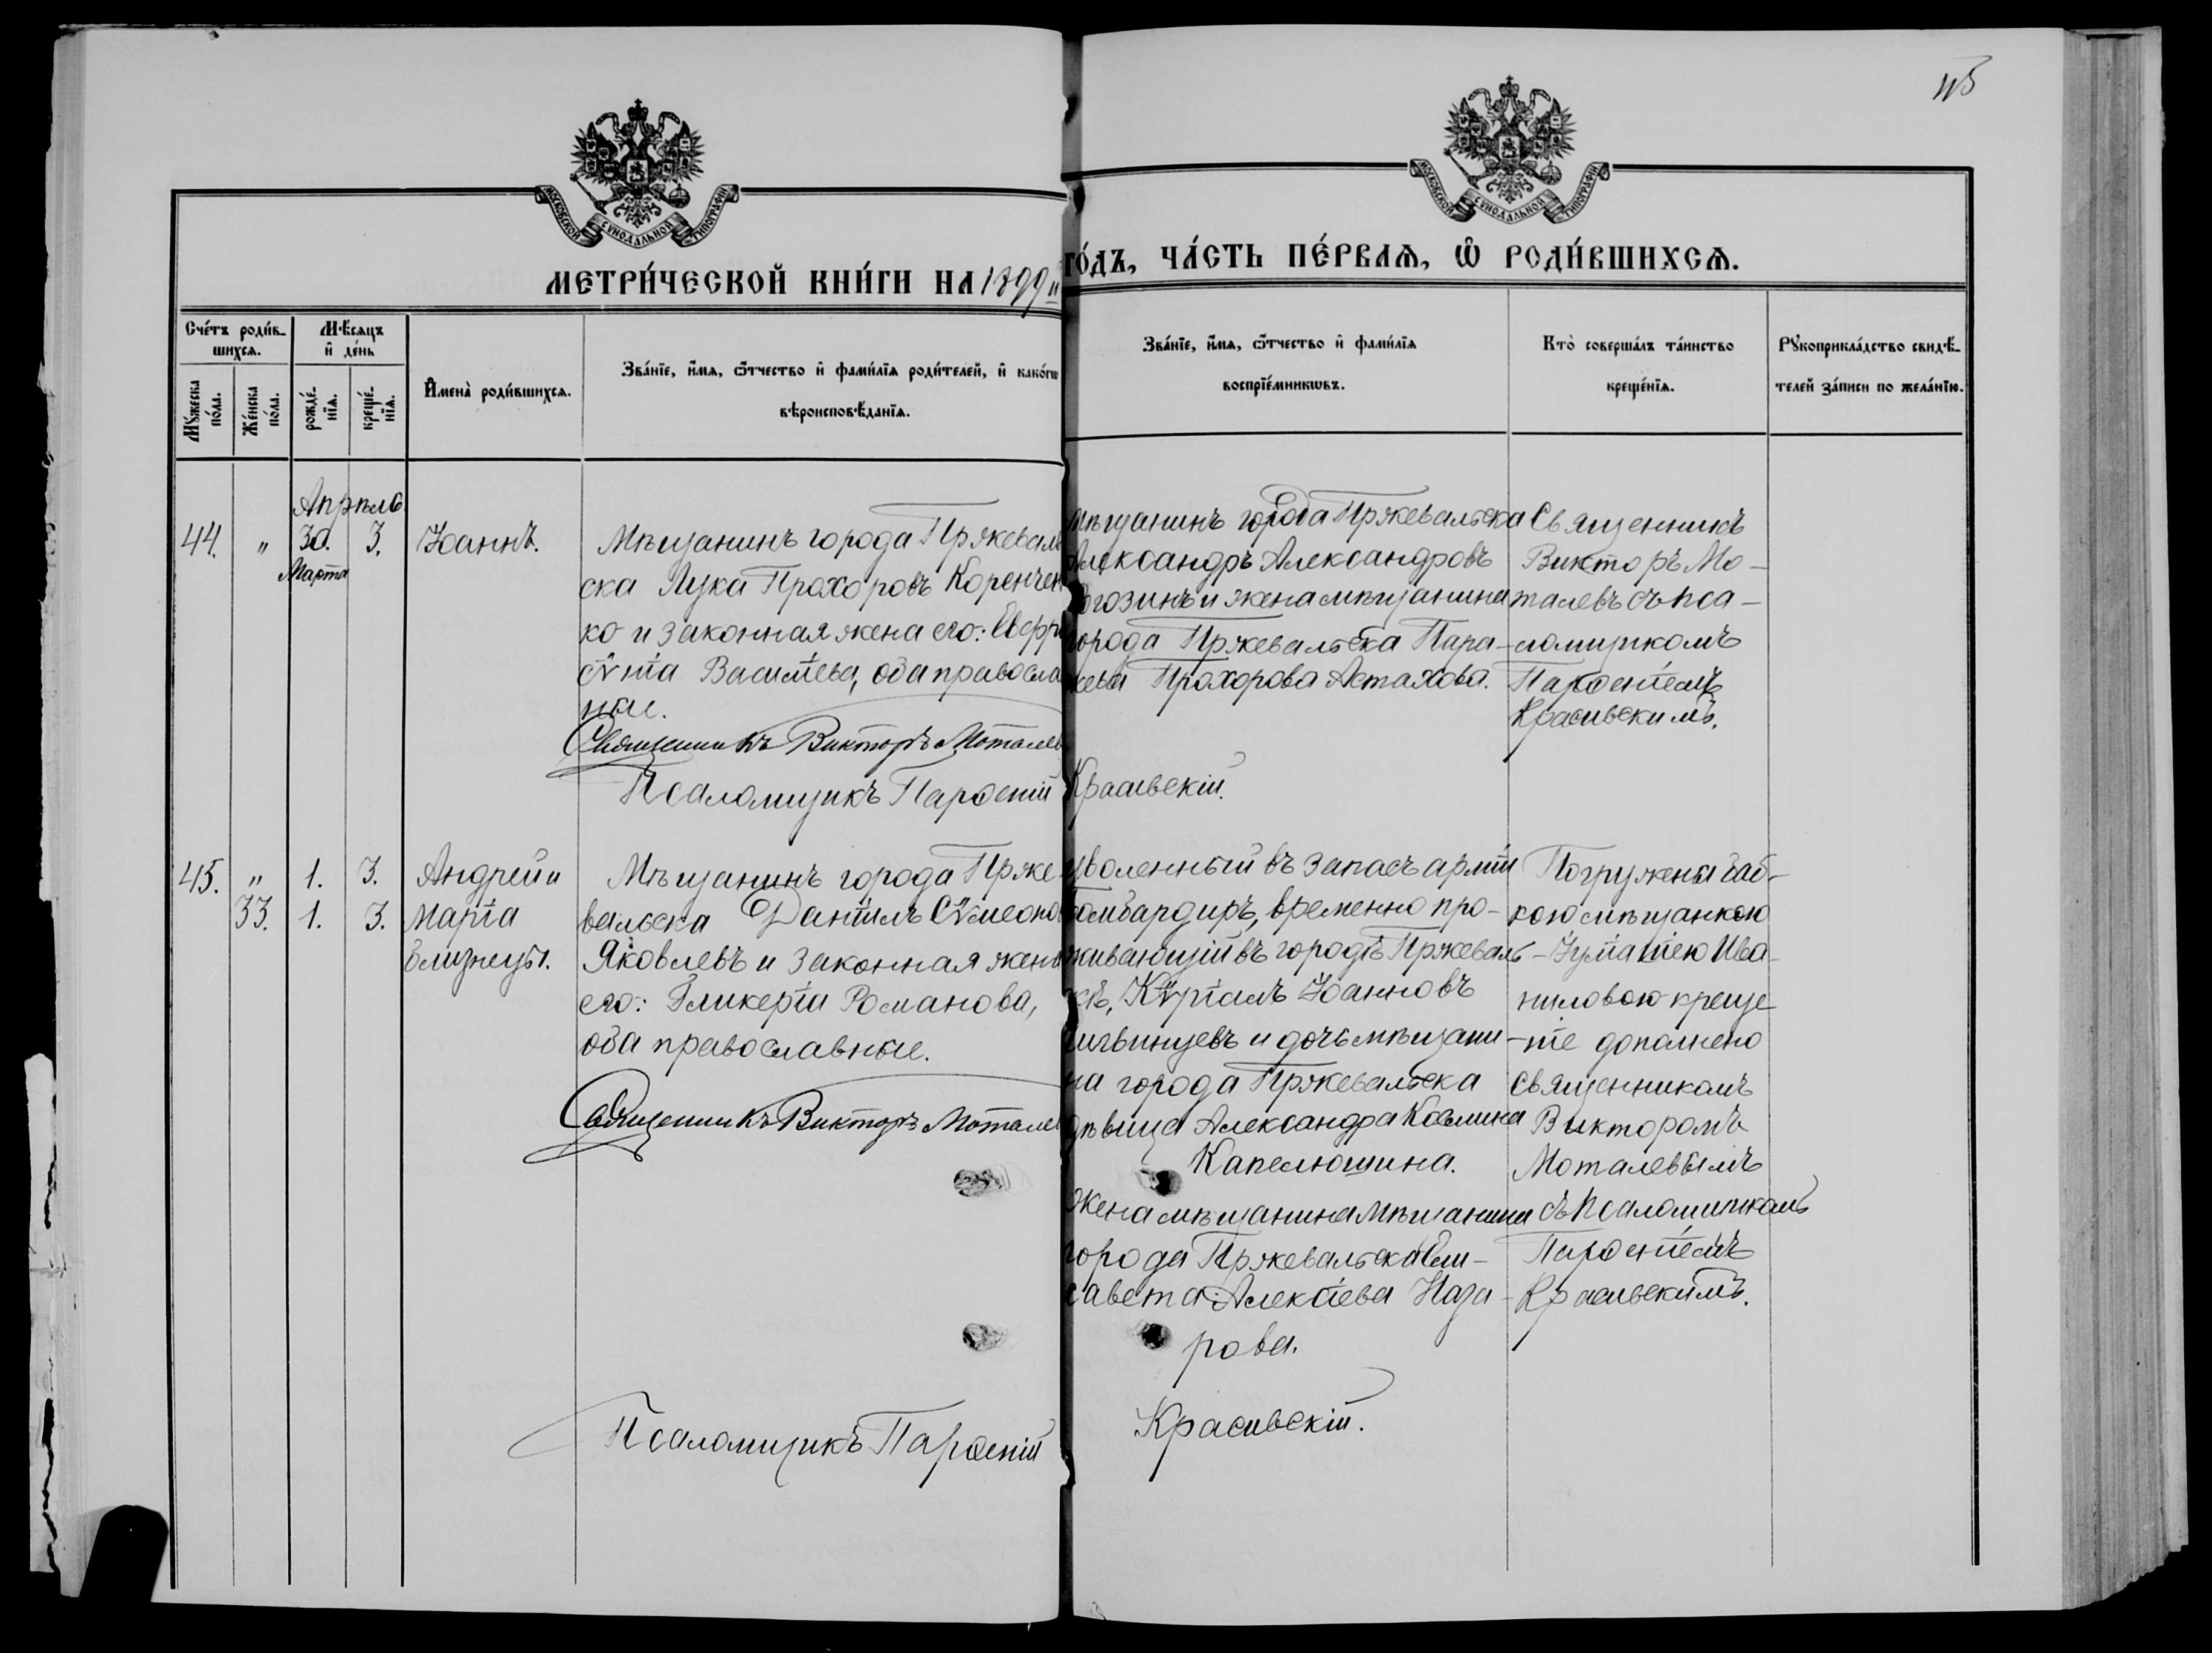 115
МОСКОВСКОЙ СѴНОДАЛЬНОЙ ТИПОГРАФІИ
МОСКОВСКОЙ СѴНОДАЛЬНОЙ ТИПОГРАФІИ
МЕТРИ́ЧЕСКОЙ КНИ́ГИ НА 1899 й
ГО́ДЪ, ЧА́СТЬ ПЕ́РВАѦ, Ѡ РОДИ́ВШИХСѦ.
Сче́тъ роди́в-
шихсѧ.
Мꙋ́жеска
по́ла.
Же́нска
по́ла.
Мѣ́сяцъ
и҆ де́нь
рожде́-
нїѧ.
креще́-
нїѧ.
И҆мена̀ роди́вшихсѧ.
Зва́нїе, и҆́мѧ, ѻ҆́тчество и҆ фами́лїѧ роди́телей, и҆ како́гѡ
вѣроисповѣ́данїѧ.
Зва́нїе, и҆́мѧ, ѻ҆́тчество и҆ фами́лїѧ
воспрїе́мникѡвъ.
Кто̀ соверша́лъ та́инство
креще́нїѧ.
Рꙋкоприкла́дство свидѣ́-
телей за́писи по жела́нїю.
Апрѣль
44. " 30. 3. Іоаннъ.
Марта
Мѣщанинъ города Пржеваль
ска Лука Прохоровъ Коренчен
ко и законная жена его: Евфро
сѵнія Васильева, оба православ
ные.
Священникъ Викторъ Моталев
Псаломщикъ Парѳеній Красивскій.
мѣщанинъ города Пржевальска
Александръ Александровъ
Рогозинъ и жена мѣщанина
города Пржевальска Пара-
скева Прохорова Астахова.
Священникъ
Викторъ Мо-
талевъ съ пса-
ломщикомъ
Парѳеніемъ
Красивскимъ.
45. " 1. 3. Андрей и
33. 1. 3. Марія
близнецы.
Мѣщанинъ города Прже
вальска Даніилъ Сѵмеоно
Яковлевъ и законная жена
его: Гликерія Романова,
оба православные.
Священникъ Викторъ Моталев
уволенный въ запасъ арміи
бомбардиръ, временно про-
живающій въ городѣ Пржеваль-
скѣ, Кѵріалъ Іоанновъ
и дочь мѣщани-
на города Пржевальска
дѣвица Александра Космина
Капелюшина.
Жена мѣщанина мѣщанина
города Пржевальска Ели-
савета Алексіева Наза-
рова.
Погружены баб-
кою мѣщанкою
Ива-
ниловою креще
ніе дополнено
священникомъ
Викторомъ
Моталевымъ
съ псаломщикомъ
Парѳеніемъ
Красивскимъ.
Псаломщикъ Парѳеній Красивскій.